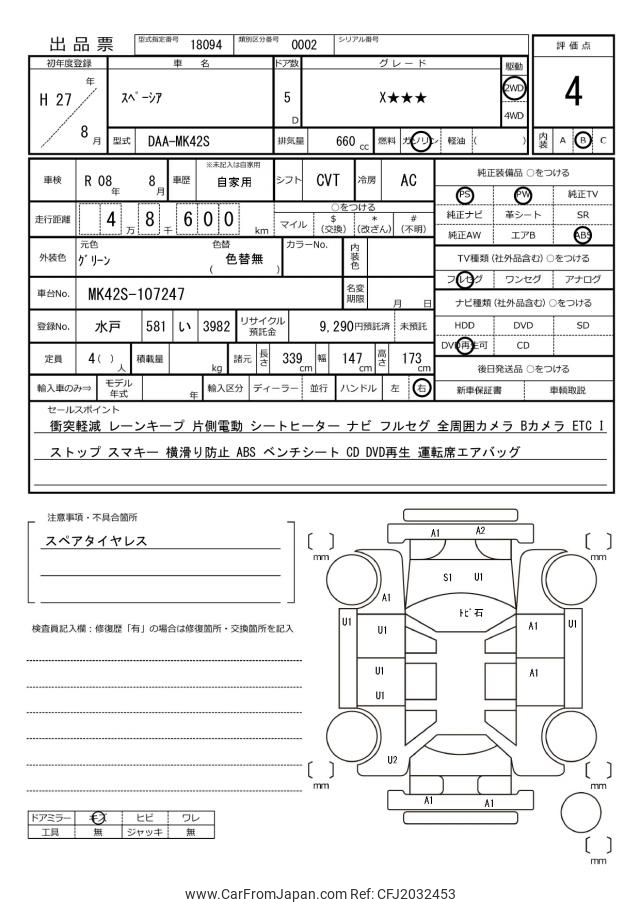 出品票 型式指定番号 18094 類別区分番号 0002 シリアル番号
評価点
4
内装 A B C
初年度登録 車名 ドア数 グレード 駆動
H 27 年 8 月
スペーシア 5 D X★★★ 2WD 4WD
型式 DAA-MK42S 排気量 660 cc 燃料 ガソリン 軽油 ( )
車検 R 08 年 8 月 車歴 ※未記入は自家用 自家用 シフト CVT 冷房 AC
走行距離 4 万 8 千 6 0 0 km
○をつける
マイル $ (交換) * (改ざん) # (不明)
外装色 元色 グリーン 色替 ( 色替無 ) カラーNo. 内装色
車台No. MK42S-107247 名変期限 月 日
登録No. 水戸 581 い 3982 リサイクル預託金 9,290円預託済 未預託
定員 4( ) 人 積載量 kg 諸元 長さ 339 cm 幅 147 cm 高さ 173 cm
輸入車のみ⇒ モデル年式 年 輸入区分 ディーラー 並行 ハンドル 左 右
純正装備品 ○をつける
PS PW 純正TV
純正ナビ 革シート SR
純正AW エアB ABS
TV種類 (社外品含む) ○をつける
フルセグ ワンセグ アナログ
ナビ種類 (社外品含む) ○をつける
HDD DVD SD
DVD再生可 CD
後日発送品 ○をつける
新車保証書 車輌取説
セールスポイント
衝突軽減 レーンキープ 片側電動 シートヒーター ナビ フルセグ 全周囲カメラ Bカメラ ETC I
ストップ スマキー 横滑り防止 ABS ベンチシート CD DVD再生 運転席エアバッグ
注意事項・不具合箇所
スペアタイヤレス
検査員記入欄：修復歴「有」の場合は修復箇所・交換箇所を記入
ドアミラー キズ ヒビ ワレ
工具 無 ジャッキ 無
A1 A2
mm mm
S1 U1
A1
トビ石
U1 U1 A1 U1
U1 A1
U1
U2
mm mm
A1 A1
mm
www.CarFromJapan.com Ref: CFJ2032453